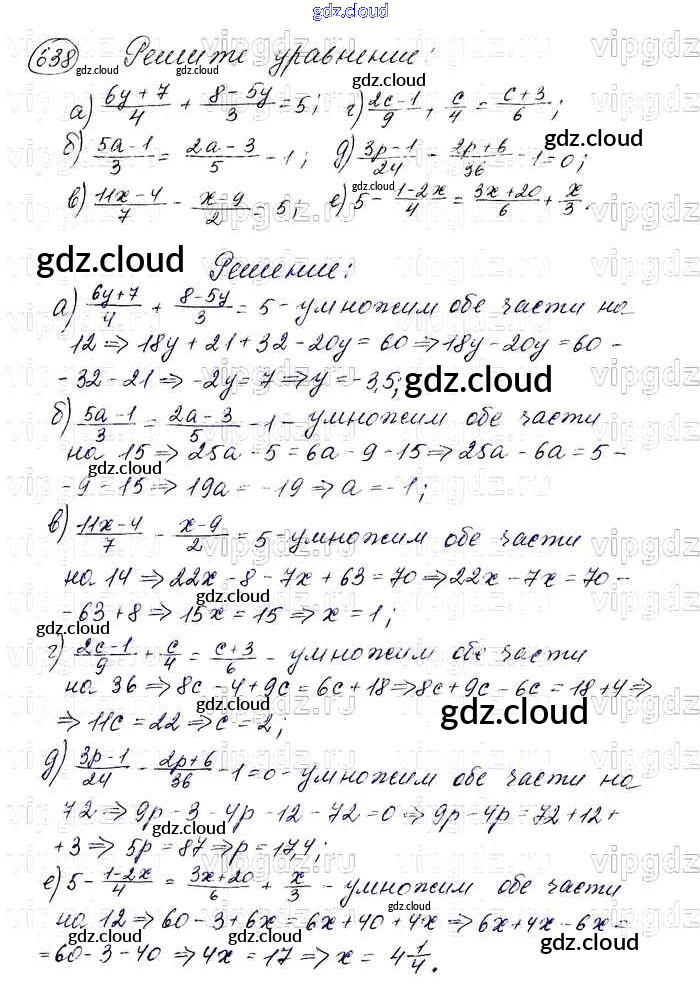 gdz.cloud
638 Решите уравнение:
а) (6y+7)/4 + (8-5y)/3 = 5; г) (2c-1)/9 + c/4 = (c+3)/6;
б) (5a-1)/3 = (2a-3)/5 - 1; д) (3p-1)/24 - (2p+6)/36 - 1 = 0;
в) (11x-4)/7 - (x-9)/2 = 5; е) 5 - (1-2x)/4 = (3x+20)/6 + x/3.
gdz.cloud Решение:
а) (6y+7)/4 + (8-5y)/3 = 5 - умножим обе части на
12 ⇒ 18y + 21 + 32 - 20y = 60 ⇒ 18y - 20y = 60 -
- 32 - 21 ⇒ -2y = 7 ⇒ y = -3,5; gdz.cloud
б) (5a-1)/3 = (2a-3)/5 - 1 - умножим обе части
на 15 ⇒ 25a - 5 = 6a - 9 - 15 ⇒ 25a - 6a = 5 -
- 9 - 15 ⇒ 19a = -19 ⇒ a = -1;
в) (11x-4)/7 - (x-9)/2 = 5 - умножим обе части
на 14 ⇒ 22x - 8 - 7x + 63 = 70 ⇒ 22x - 7x = 70 -
- 63 + 8 ⇒ 15x = 15 ⇒ x = 1;
г) (2c-1)/9 + c/4 = (c+3)/6 - умножим обе части
на 36 ⇒ 8c - 4 + 9c = 6c + 18 ⇒ 8c + 9c - 6c = 18 + 4 ⇒
⇒ 11c = 22 ⇒ c = 2; gdz.cloud
д) (3p-1)/24 - (2p+6)/36 - 1 = 0 - умножим обе части на
72 ⇒ 9p - 3 - 4p - 12 - 72 = 0 ⇒ 9p - 4p = 72 + 12 +
+ 3 ⇒ 5p = 87 ⇒ p = 17,4;
е) 5 - (1-2x)/4 = (3x+20)/6 + x/3 - умножим обе части
на 12 ⇒ 60 - 3 + 6x = 6x + 40 + 4x ⇒ 6x + 4x - 6x =
= 60 - 3 - 40 ⇒ 4x = 17 ⇒ x = 4 1/4.